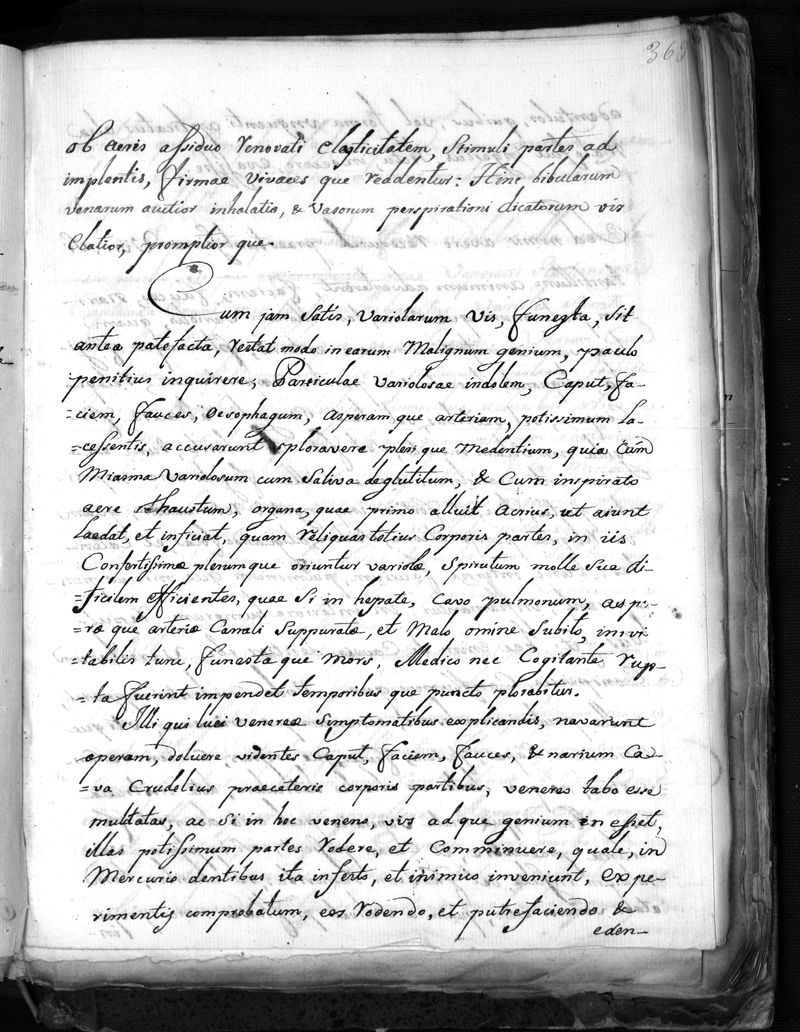 363
ob aeris assiduo renovati elasticitatem, stimuli partes ad
implentis, firmae vivaces que reddentur: Hinc bibularum
venarum auctior inhalatio, & vasorum perspirationi dicatorum vis
elatior, promptior que.
Cum jam satis, variolarum vis, funesta, sit
antea patefacta, restat modo in earum malignum genium, paulo
penitius inquirere; Particulae variolosae indolem, Caput, fa-
=ciem, fauces, oesophagum, asperam que arteriam, potissimum la-
=cessentis, accusarunt sploravere pleri que medentium, quia cum
Miasma variolosum cum saliva deglutitum, & cum inspirato
aere exhaustum, organa, quae primo alluit acrius, ut aiunt
laedat, et inficiat, quam reliquas totius Corporis partes, in iis
Confertissimae plerumque oriuntur variolae, spirutum molle sua di-
=ficilem efficientes, quae si in hepate, cavo pulmonum, aspe-
=rae que arteriae Canali suppuratae, et malo omine subito, inevi
=tabilis tunc, funesta que mors, Medico nec Cogitante rup-
=ta fuerint impendet temporibus que puncto plorabitur.
Illi qui luei venereae simptomatibus explicandis, navarunt
operam, doluere videntes Caput, faciem, fauces, & narium Ca-
=va Crudelius praeceteris corporis partibus, venereo tabo esse
multatas, ac si in hoc veneno, vis ad que genium in esset,
illas potissimum partes rodere, et Comminuere, quale, in
Mercurio dentibus ita infesto, et inimico inveniunt, expe-
rimentis comprobatum, eos rodendo, et putrefaciendo &
eden-